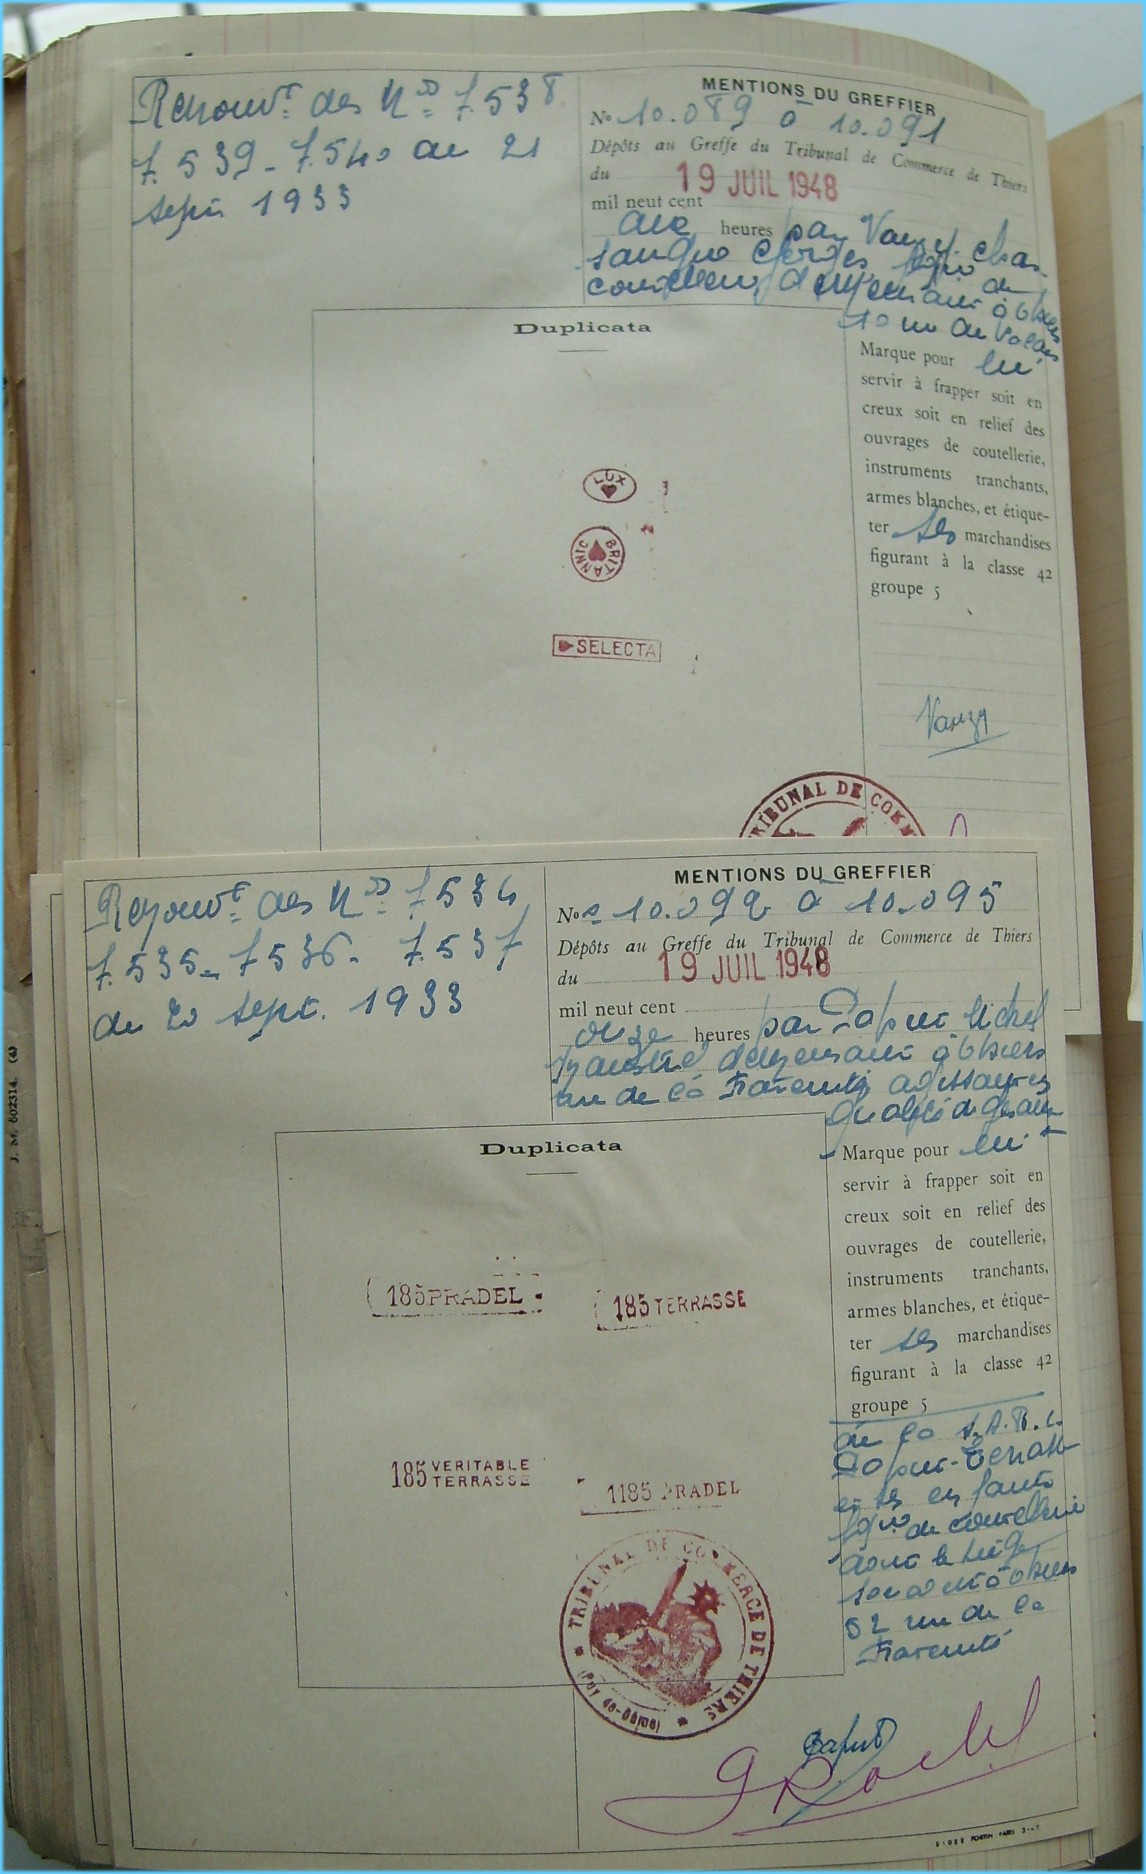 Renouvt des Nos 7.538
7.539 - 7.540 du 21
sept. 1933
MENTIONS DU GREFFIER
No 10.089 à 10.091
Dépôts au Greffe du Tribunal de Commerce de Thiers
du 19 JUIL 1948
mil neuf cent
heures par Vauzy
demeurant à
Duplicata
Marque pour lui
servir à frapper soit en
creux soit en relief des
ouvrages de coutellerie,
instruments tranchants,
armes blanches, et étique-
ter ses marchandises
figurant à la classe 42
groupe 5
LUX
BRITANNIC
SELECTA
Vauzy
TRIBUNAL DE COMM
Renouvt des Nos 7.534
7.535 - 7536 - 7.537
du 20 sept. 1933
MENTIONS DU GREFFIER
Nos 10.092 à 10.095
Dépôts au Greffe du Tribunal de Commerce de Thiers
du 19 JUIL 1948
mil neuf cent
onze heures par Saput Michel
demeurant à
rue de la Fraternité agissant en
qualité de gérant
Duplicata
Marque pour lui
servir à frapper soit en
creux soit en relief des
ouvrages de coutellerie,
instruments tranchants,
armes blanches, et étique-
ter ses marchandises
figurant à la classe 42
groupe 5
de la S.A.R.L.
de coutellerie
dont le siège
social est à
52 rue de la
Fraternité
185 PRADEL
185 TERRASSE
185 VERITABLE
TERRASSE
1185 PRADEL
TRIBUNAL DE COMMERCE DE THIERS
(Puy-de-Dôme)
Saput
J. M. 602314. (4)